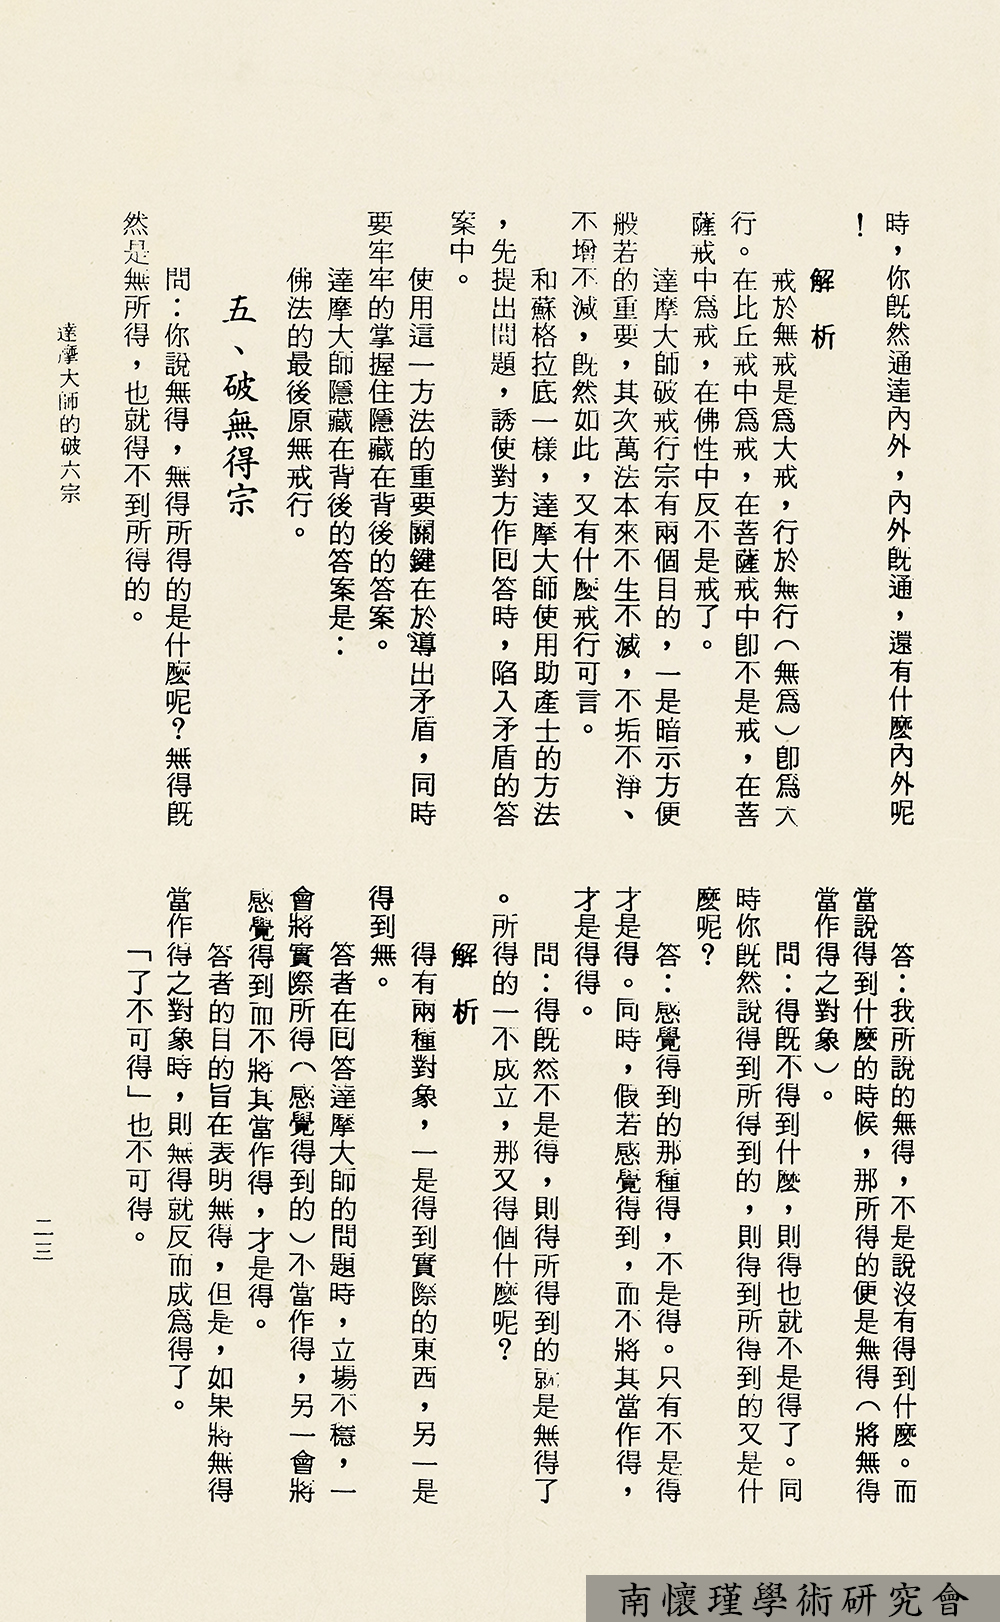 時，你既然通達內外，內外既通，還有什麼內外呢
！
解析
戒於無戒是爲大戒，行於無行（無爲）卽爲大
行。在比丘戒中爲戒，在菩薩戒中卽不是戒，在菩
薩戒中爲戒，在佛性中反不是戒了。
達摩大師破戒行宗有兩個目的，一是暗示方便
般若的重要，其次萬法本來不生不滅，不垢不淨、
不增不減，既然如此，又有什麼戒行可言。
和蘇格拉底一樣，達摩大師使用助產士的方法
，先提出問題，誘使對方作回答時，陷入矛盾的答
案中。
使用這一方法的重要關鍵在於導出矛盾，同時
要牢牢的掌握住隱藏在背後的答案。
達摩大師隱藏在背後的答案是：
佛法的最後原無戒行。
五、破無得宗
問：你說無得，無得所得的是什麼呢？無得既
然是無所得，也就得不到所得的。
答：我所說的無得，不是說沒有得到什麼。而
當說得到什麼的時候，那所得的便是無得（將無得
當作得之對象）。
問：得既不得到什麼，則得也就不是得了。同
時你既然說得到所得到的，則得到所得到的又是什
麼呢？
答：感覺得到的那種得，不是得。只有不是得
才是得。同時，假若感覺得到，而不將其當作得，
才是得得。
問：得既然不是得，則得所得到的就是無得了
。所得的一不成立，那又得個什麼呢？
解析
得有兩種對象，一是得到實際的東西，另一是
得到無。
答者在回答達摩大師的問題時，立場不穩，一
會將實際所得（感覺得到的）不當作得，另一會將
感覺得到而不將其當作得，才是得。
答者的目的旨在表明無得，但是，如果將無得
當作得之對象時，則無得就反而成爲得了。
「了不可得」也不可得。
達摩大師的破六宗
二三
南懷瑾學術研究會